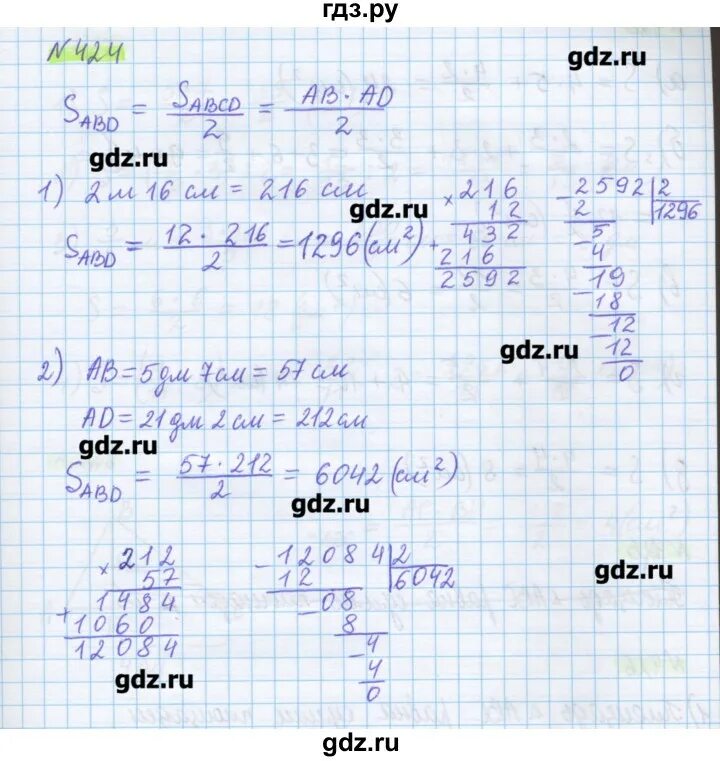 гдз.ру
N 424
gdz.ru
S_ABD = S_ABCD / 2 = AB · AD / 2
gdz.ru
1) 2 м 16 см = 216 см
gdz.ru
S_ABD = 12 · 216 / 2 = 1296 (см²)
× 216
12
432
+ 216
2592
- 2592 | 2
2
1296
- 5
4
- 19
18
- 12
12
0
gdz.ru
2) AB = 5 дм 7 см = 57 см
AD = 21 дм 2 см = 212 см
gdz.ru
S_ABD = 57 · 212 / 2 = 6042 (см²)
gdz.ru
× 212
57
1484
+ 1060
12084
- 12084 | 2
12
6042
- 08
8
- 4
4
0
gdz.ru
gdz.ru
gdz.ru